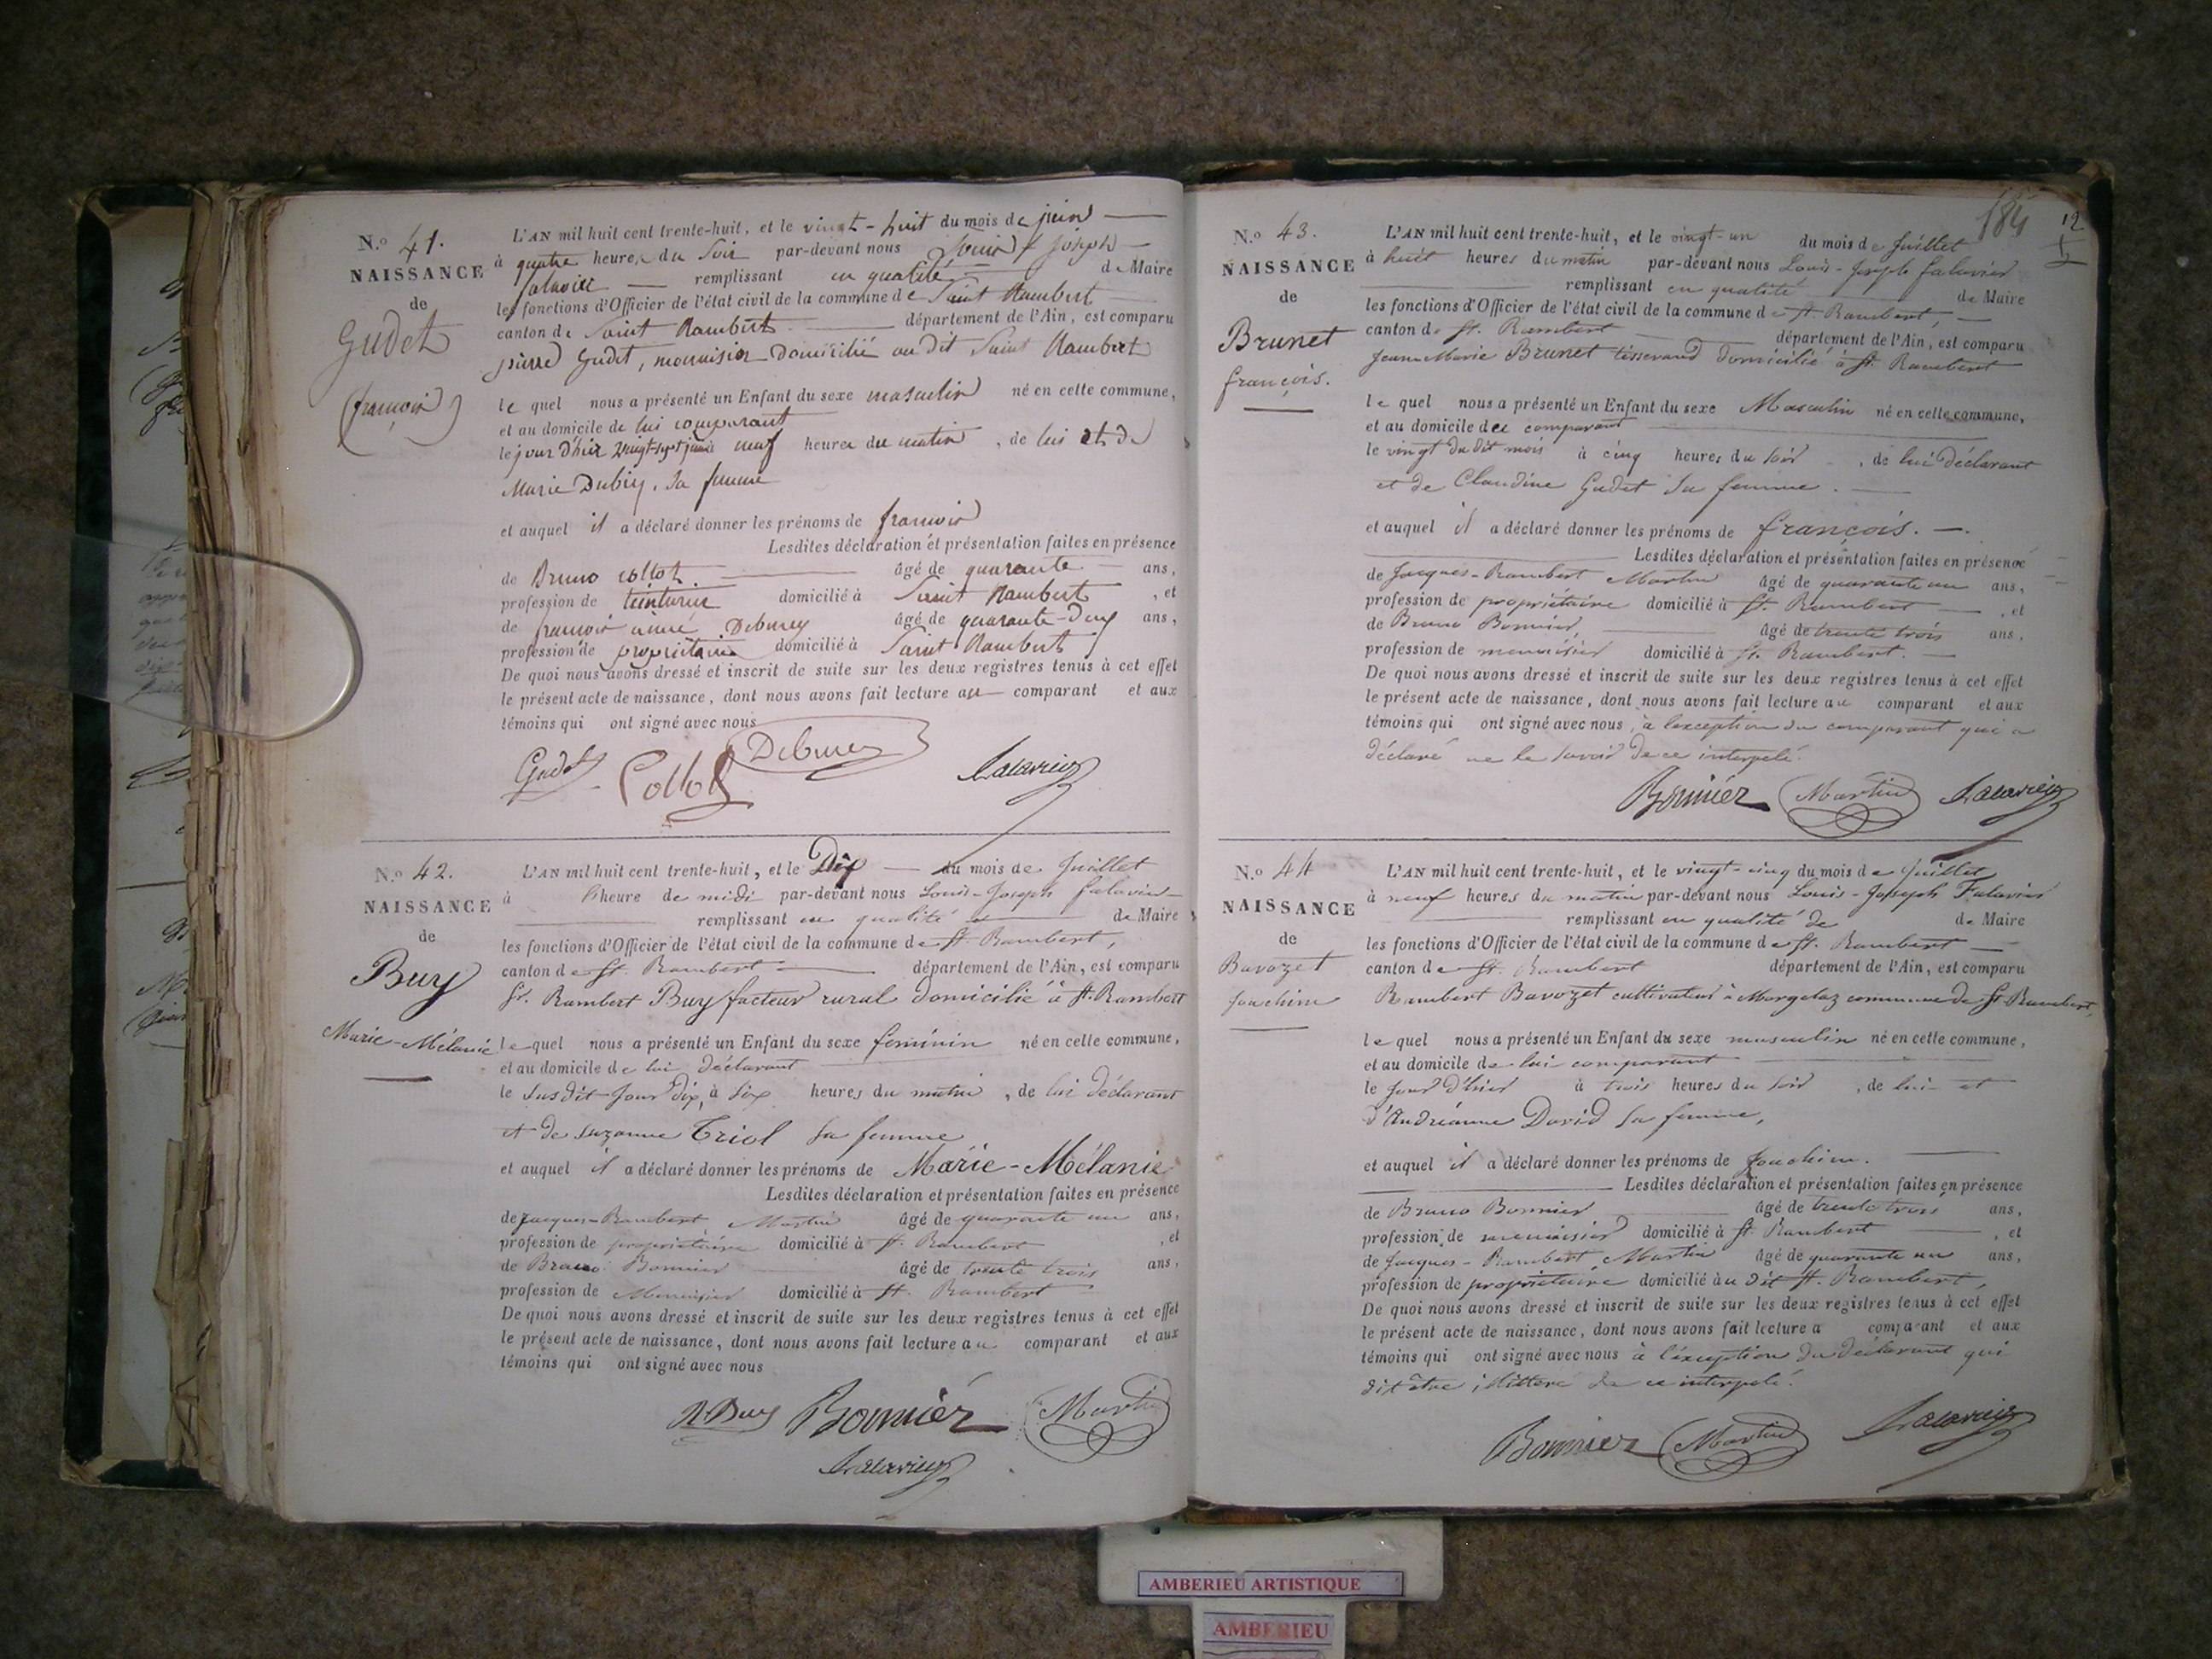 N.o 41.
NAISSANCE
de
Gudet
(françois)
L'AN mil huit cent trente-huit, et le vingt-huit du mois de juin
à quatre heures du soir par-devant nous Louis joseph
falavier remplissant en qualité de Maire
les fonctions d'Officier de l'état civil de la commune de Saint Rambert
canton de Saint Rambert département de l'Ain, est comparu
pierre Gudet, menuisier domicilié au dit Saint Rambert
le quel nous a présenté un Enfant du sexe masculin né en cette commune,
et au domicile de lui comparant
le jour d'hier vingt-sept juin à neuf heures du matin, de lui et de
Marie Dubiy, sa femme
et auquel il a déclaré donner les prénoms de françois
Lesdites déclaration et présentation faites en présence
de Bruno Collot âgé de quarante ans,
profession de teinturier domicilié à Saint Rambert, et
de françois aimé Debuney âgé de quarante-deux ans,
profession de propriétaire domicilié à Saint Rambert
De quoi nous avons dressé et inscrit de suite sur les deux registres tenus à cet effet
le présent acte de naissance, dont nous avons fait lecture au comparant et aux
témoins qui ont signé avec nous
Gudet Collot Debuney falavier
N.o 42.
NAISSANCE
de
Buy
Marie-Mélanie
L'AN mil huit cent trente-huit, et le Dix du mois de Juillet
à l'heure de midi par-devant nous Louis-Joseph falavier
remplissant en qualité de Maire
les fonctions d'Officier de l'état civil de la commune de St. Rambert,
canton de St. Rambert département de l'Ain, est comparu
Sr. Rambert Buy facteur rural domicilié à St. Rambert
le quel nous a présenté un Enfant du sexe féminin né en cette commune,
et au domicile de lui déclarant
le susdit jour dix, à six heures du matin, de lui déclarant
et de suzanne Criol sa femme
et auquel il a déclaré donner les prénoms de Marie-Mélanie
Lesdites déclaration et présentation faites en présence
de Jacques-Rambert Martin âgé de quarante un ans,
profession de propriétaire domicilié à St. Rambert, et
de Bruno Bonnier âgé de trente trois ans,
profession de Menuisier domicilié à St. Rambert
De quoi nous avons dressé et inscrit de suite sur les deux registres tenus à cet effet
le présent acte de naissance, dont nous avons fait lecture au comparant et aux
témoins qui ont signé avec nous
R. Buy Bonnier Martin
falavier
184 12
N.o 43.
NAISSANCE
de
Brunet
françois.
L'AN mil huit cent trente-huit, et le vingt-un du mois de Juillet
à huit heures du matin par-devant nous Louis-Joseph falavier
remplissant en qualité de Maire
les fonctions d'Officier de l'état civil de la commune de St. Rambert,
canton de St. Rambert département de l'Ain, est comparu
Jean Marie Brunet tisserand domicilié à St. Rambert
le quel nous a présenté un Enfant du sexe Masculin né en cette commune,
et au domicile du comparant
le vingt du dit mois à cinq heures du soir, de lui déclarant
et de Claudine Gudet sa femme.
et auquel il a déclaré donner les prénoms de françois.
Lesdites déclaration et présentation faites en présence
de Jacques-Rambert Martin âgé de quarante un ans,
profession de propriétaire domicilié à St. Rambert, et
de Bruno Bonnier, âgé de trente trois ans,
profession de menuisier domicilié à St. Rambert.
De quoi nous avons dressé et inscrit de suite sur les deux registres tenus à cet effet
le présent acte de naissance, dont nous avons fait lecture au comparant et aux
témoins qui ont signé avec nous, à l'exception du comparant qui a
déclaré ne le savoir de ce interpelé.
Bonnier Martin falavier
N.o 44
NAISSANCE
de
Bavozet
Joachim
L'AN mil huit cent trente-huit, et le vingt-cinq du mois de Juillet
à neuf heures du matin par-devant nous Louis-Joseph Falavier
remplissant en qualité de de Maire
les fonctions d'Officier de l'état civil de la commune de St. Rambert
canton de St. Rambert département de l'Ain, est comparu
Rambert Bavozet cultivateur à Morgelaz commune de St. Rambert,
le quel nous a présenté un Enfant du sexe masculin né en cette commune,
et au domicile de lui comparant
le jour d'hier à trois heures du soir, de lui et
d'Andréanne David sa femme,
et auquel il a déclaré donner les prénoms de Joachim.
Lesdites déclaration et présentation faites en présence
de Bruno Bonnier âgé de trente trois ans,
profession de menuisier domicilié à St. Rambert, et
de Jacques-Rambert Martin âgé de quarante un ans,
profession de propriétaire domicilié au dit St. Rambert,
De quoi nous avons dressé et inscrit de suite sur les deux registres tenus à cet effet
le présent acte de naissance, dont nous avons fait lecture a comparant et aux
témoins qui ont signé avec nous à l'exception du déclarant qui
dit être illitteré de ce interpelé.
Bonnier Martin falavier
AMBERIEU ARTISTIQUE
AMBERIEU